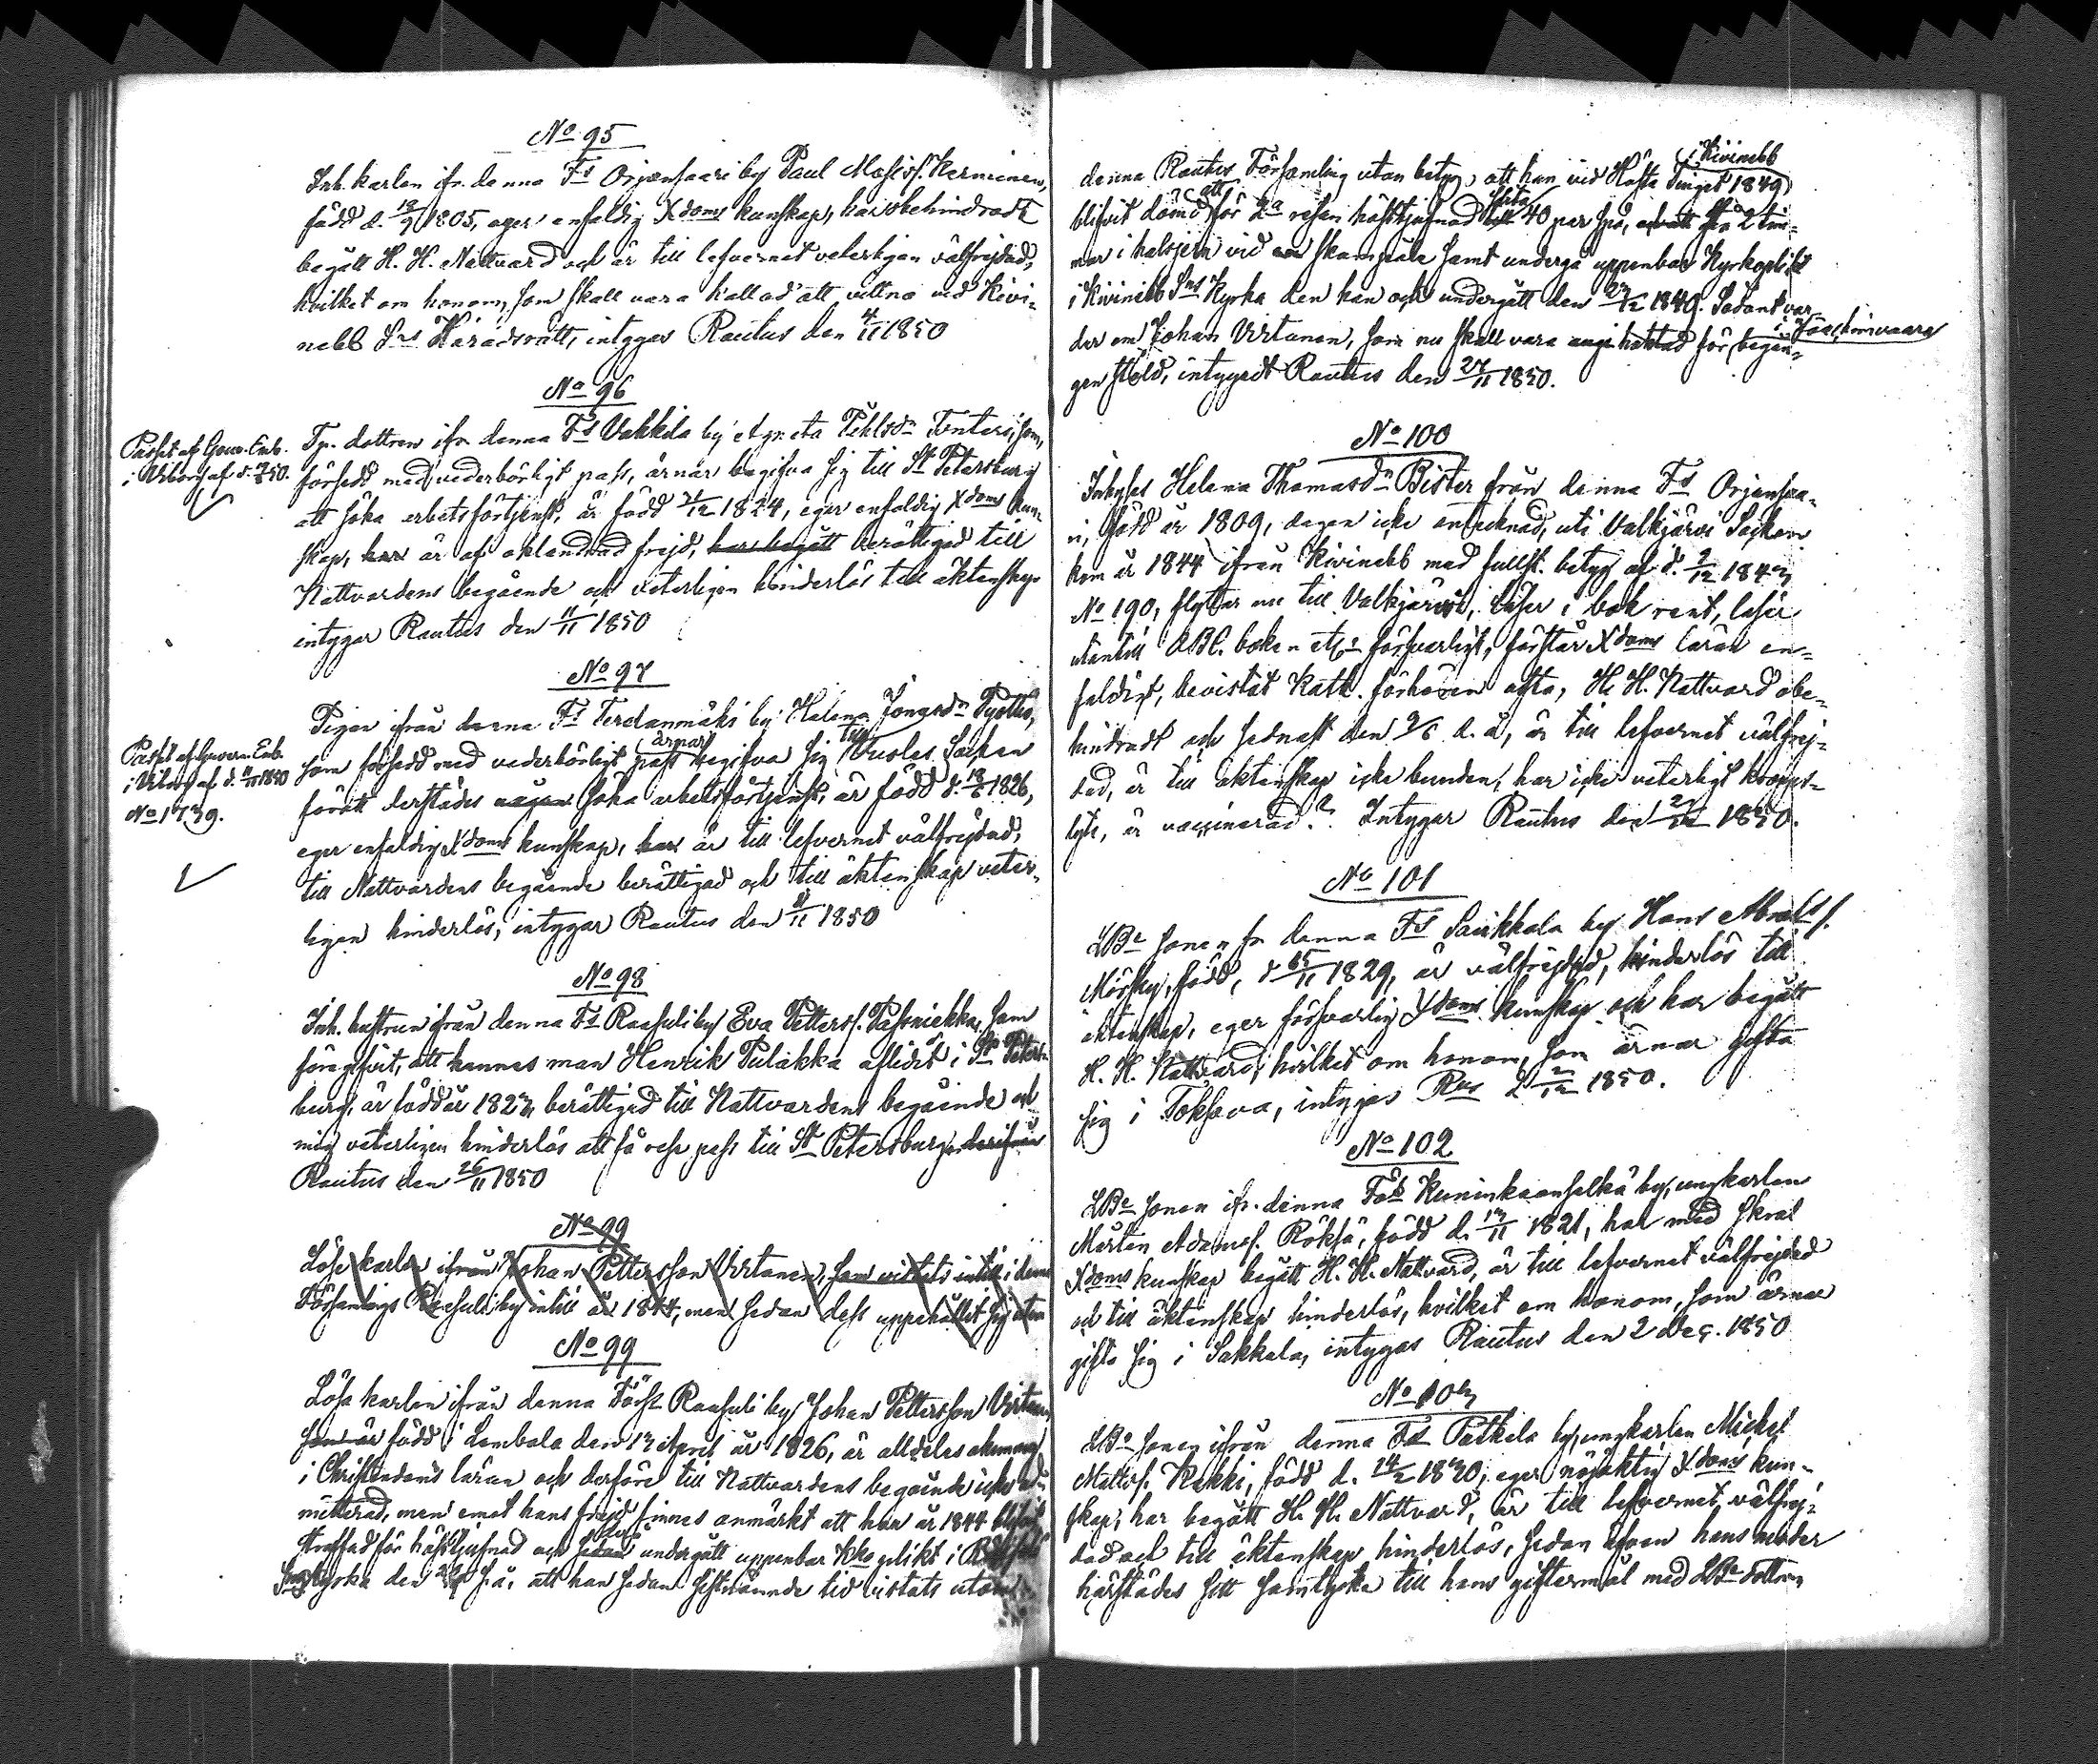 No 95
Inh. karlen ifr. denna Fs Orjansaari by Paul Matss. Karminen,
född d. 18/9 1805, eger enfaldig Xdoms kunskap, har obehindradt
begått H. H. Nattvard och är till lefvernet veterligen välfrejdad,
hvilket om honom, som skall vara kallad att vittna vid Kivi-
nebb Sns Häradsrätt, intygas Rautus den 4/11 1850
No 96
Passet af Gouv. Emb.
i Viborg af d. 50.
Tp. dottren ifr. denna Fs Vakkila by Agneta Tontteri, som,
försedd med vederbörligt pass, ärnar begifva sig till St Petersburg
att söka arbetsförtjenst, är född 21/12 1824, eger enfaldig Xdoms kun-
skap, har är af oklandrad frejd, har begått berättigad till
Nattvardens begående och veterligen hinderlös till äktenskap
intygar Rautus den 11/11 1850
No 97
Passet af Guvern. Emb.
i Viborg af d. 11/11 1850
No 1739.
Pigan ifrån denna Fs Terdanmäki by Helena Jonasdn Pyöttiö,
som försedd med vederbörligt pass ärnar begifva sig till Vuoles Socken
föratt derstädes någon söka arbetsförtjenst, är född d. 18/6 1826,
eger enfaldig Xdoms kunskap, har är till lefvernet välfrejdad,
till Nattvardens begående berättigad och till äktenskap veter-
ligen hinderlös, intygar Rautus den 11/11 1850
No 98
Inh. hustrun ifrån denna Fs Raasuli by Eva Petterss. Passniekka, som
föregifvit, att hennes man Henrik Pulakka aflidit i St Peters-
burg, är född år 1823, berättigad till Nattvardens begående och
mig veterligen hinderlös att få rese pass till St Petersburg, derifrån
Rautus den 26/11 1850
No 99
Löse karlen ifrån Johan Pettersson Virtanen, som vistats intill i denna
Församlings Raasuli by intill år 1844, men sedan dess uppehållit sig utom
No 99
Lösa karlen ifrån denna Förs. Raasuli by Johan Pettersson Virtanen,
som är född i Lembala den 13 April år 1826, är alldeles okunnig
i Christendoms läran och derföre till Nattvardens begående icke ad-
mitterad, men emot hans frejd finnes anmärkt att han år 1844 blifvit
straffad för häststjufnad och sedan undergått uppenbar Kkoplikt i
Sns kyrka den s. å. att han sedan sistnämnde tid vistats utom
denna Rautus Församling utan betyg, att han vid Höste Tinget 1849 i Kivinebb
blifvit dömd att för 2a resan häststjufnad slita 40 par spö, och att stå 2 tim-
mar i halsjern vid en skampåle samt undergå uppenbar Kyrkoplikt
i Kivinebb Sns Kyrka den han och undergått den 23/12 1849. Sådant var
der om Johan Virtanen, som nu skall vara häktad för i Jääskinvaara begån-
gen stöld, intygadt Rautus den 27/11 1850.
No 100
Inhyses Helena Thomasdn Bister från denna Fs Orjansaa-
ri, född år 1809, dagen icke antecknad, uti Valkjärvi Socken
kom år 1844 ifrån Kivinebb med fullst. betyg af d. 9/12 1843
No 190, flyttar nu till Valkjärvi, läser i bok rent, läser
utantill ABC. boken etc försvarligt, förstår Xdoms läran en-
faldigt, bevistat Kath. förhören ofta, H. H. Nattvard obe-
hindradt och sednast den 9/6 d. å, är till lefvernet välfrej-
dad, är till äktenskap icke bunden, har icke veterligt kropps-
lyte, är vaccinerad.? Intygar Rautus den 1850.
No 101
LBe sonen fr denna Fs Saukkola by Hans Abrahss.
Mörsky, född, d 15/11 1829, är välfrejdad, hinderlös till
äktenskap, eger försvarlig Xdoms kunskap och har begått
H. H. Nattvard, hvilket om honom, som ärnar gifta
sig i Toksova, intygas Rus d 2/12 1850.
No 102
LBe sonen ifr. denna Fös Kuninkaanselkä by, ungkarlen
Mårten Adamss. Röksä, född d. 13/11 1821, har med skral
Xdoms kunskap begått H. H. Nattvard, är till lefvernet välfrejdad
och till äktenskap hinderlös, hvilket om honom, som ärnar
gifta sig i Sakkola, intygas Rautus den 2 Dec. 1850
No 103
LBo sonen ifrån denna Fös Potkela by, ungkarlen Michel
Mattss. Kekki, född d. 14/2 1830, eger nöjaktig Xdoms kun-
skap, har begått H. H. Nattvard, är till lefvernet välfrej-
dad och till äktenskap hinderlös, sedan äfven hans moder
härstädes sitt samtycke till hans giftermål med LBe dottren